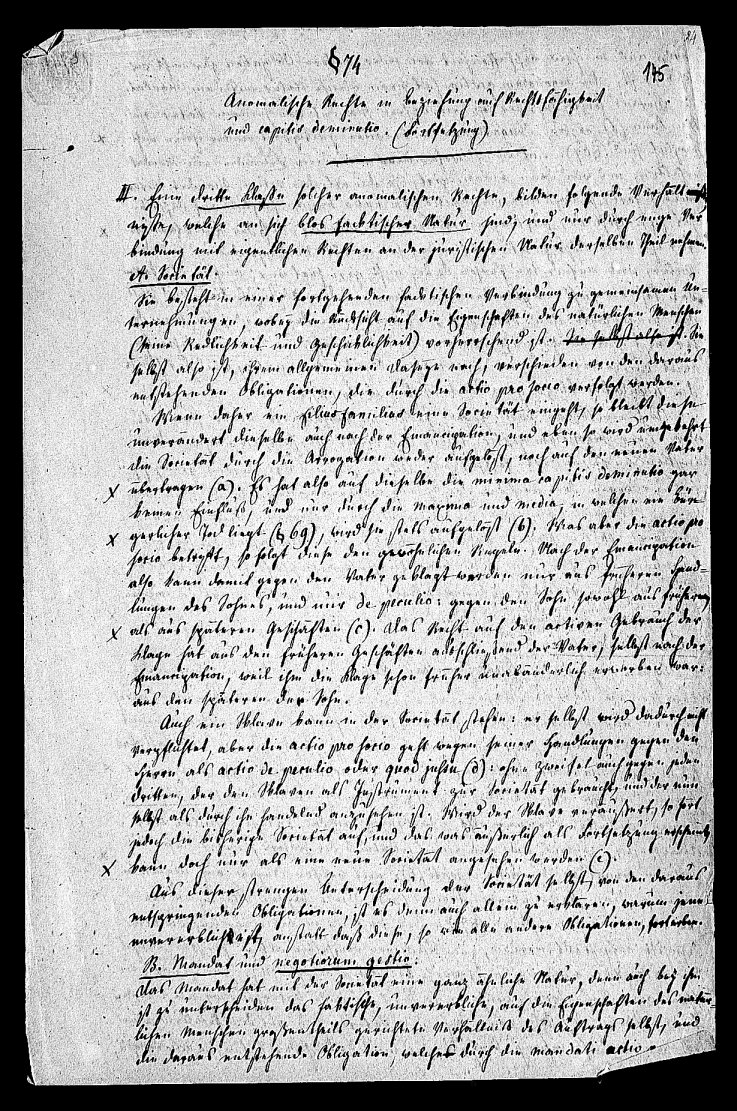 24
§74
145
Anomalische Rechte in Beziehung auf Rechtsfähigkeit
und capitis deminutio. (Fortsetzung)
III. Eine dritte Klasse solcher anomalischen Rechte, bilden folgende Verhält-
nisse, welche an sich blos factischer Natur sind, und nur durch enge Ver
bindung mit eigentlichen Rechten an der juristischen Natur derselben Theil nehmen.
A. Societät.
Sie besteht in einer fortgehenden factischen Verbindung zu gemeinsamen Un-
ternehmungen, wobey die Rücksicht auf die Eigenschaften des natürlichen Menschen
(seine Redlichkeit und Geschicklichkeit) vorherrschend ist. Sie selbst also ist Sie
selbst also ist, ihrem allgemeinen Daseyn nach, verschieden von den daraus
entstehenden Obligationen, die durch die actio pro socio verfolgt werden.
Wenn daher ein filiusfamilias eine Societät eingeht, so bleibt diese
unverändert dieselbe auch nach der Emancipation, und eben so wird umgekehrt
die Societät durch die Arrogation weder aufgelöst, noch auf den neuen Vater
übertragen (a). Es hat also auf dieselbe die minima capitis deminutio gar
keinen Einfluß, und nur durch die maxima und media, in welchen ein bür-
gerlicher Tod liegt (§ 69), wird sie stets aufgelöst (b). Was aber die actio pro
socio betrifft, so folgt diese den gewöhnlichen Regeln. Nach der Emancipation
also kann damit gegen den Vater geklagt werden nur aus früheren Hand-
lungen des Sohnes, und nur de peculio: gegen den Sohn sowohl aus früheren
als aus späteren Geschäften (c). Das Recht auf den activen Gebrauch der
Klage hat aus den früheren Geschäften ausschließend der Vater, selbst nach der
Emancipation, weil ihm die Klage schon früher unabänderlich erworben war:
aus den späteren der Sohn.
Auch ein Sklave kann in der Societät stehen: er selbst wird dadurch nicht
verpflichtet, aber die actio pro socio geht wegen seiner Handlungen gegen den
Herrn als actio de peculio oder quod jussu (d): ohne Zweifel auch gegen jeden
dritten, der den Sklaven als Instrument zur Societät gebraucht, und der nun
selbst als durch ihn handelnd anzusehen ist. Wird der Sklave veräußert, so hört
jedoch die bisherige Societät auf, und das was äußerlich als Fortsetzung erscheint,
kann doch nur als eine neue Societät angesehen werden (e).
Aus dieser strengen Unterscheidung der Societät selbst, von den daraus
entspringenden Obligationen, ist es denn auch allein zu erklären, warum jene
unvererblich ist, anstatt daß diese, so wie alle andere Obligationen, forterben.
B. Mandat und negotiorum gestio.
Das Mandat hat mit der Societät eine ganz ähnliche Natur, denn auch bey ihm
ist zu unterscheiden das faktische, unvererbliche, auf die Eigenschaften des natür-
lichen Menschen großentheils gerichtete Verhältniß des Auftrags selbst, und
die daraus entstehende Obligation, welche durch die mandati actio